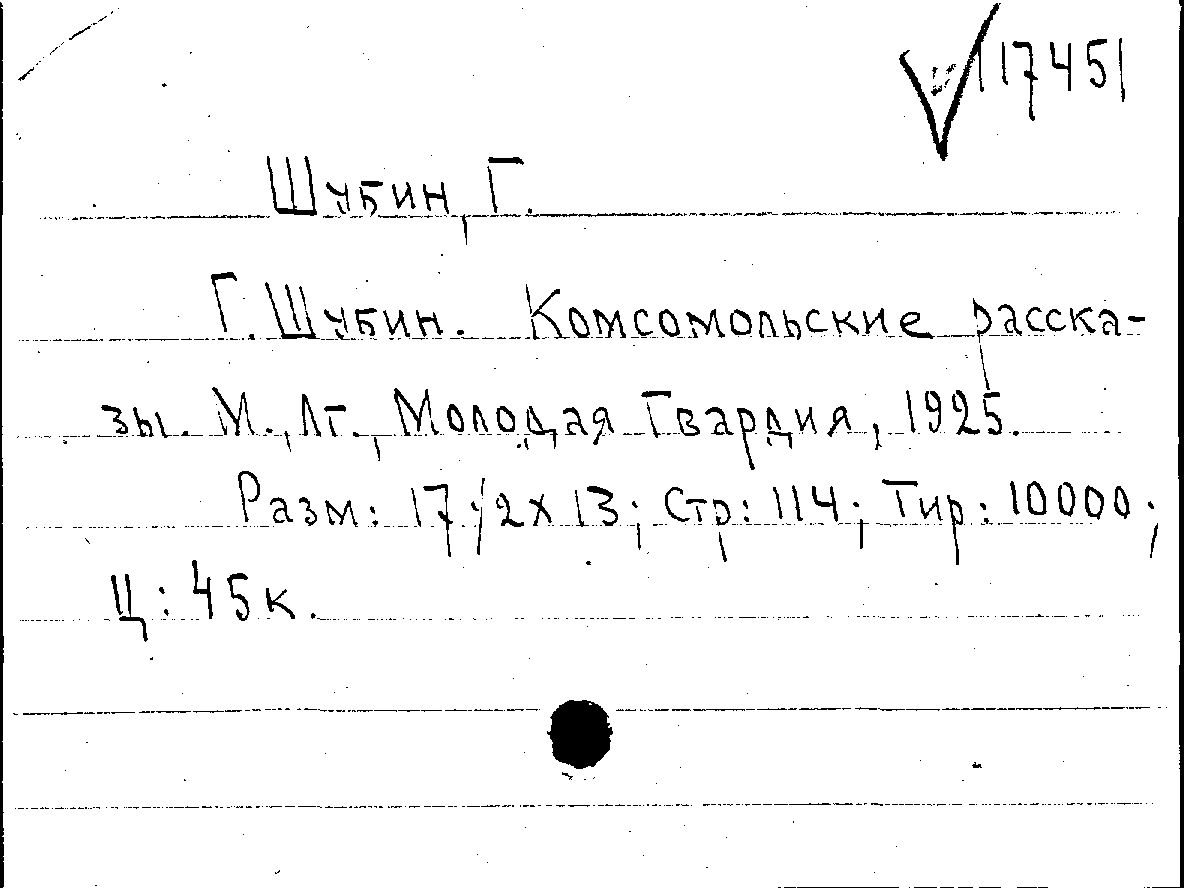 117451
Шубин, Г.
Г. Шубин. Комсомольские расска-
зы. М., Лг., Молодая Гвардия, 1925.
Разм: 17 1/2 x 13; Стр: 114; Тир: 10000;
Ц: 45 к.